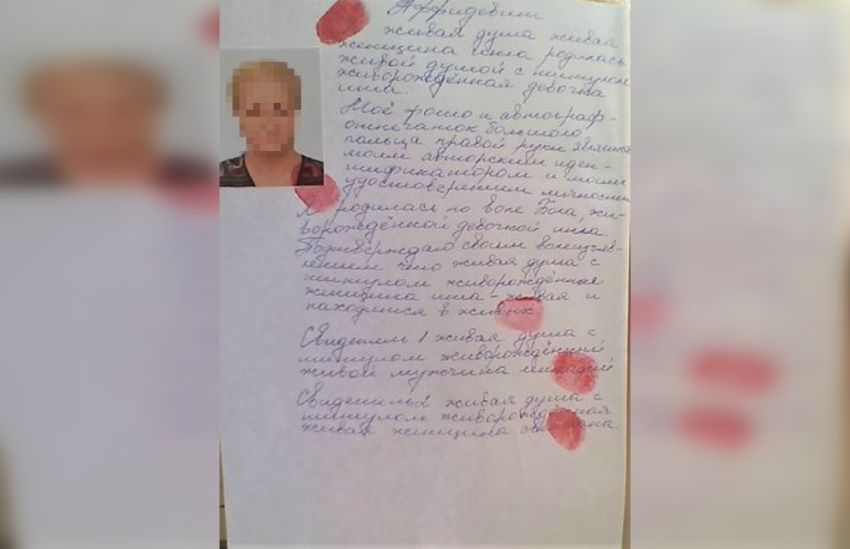 Аффидевит
живая душа живая
женщина инга родилась
живой душой с титулом
живорождённая девочка
инга.
Моё фото и автограф-
отпечаток большого
пальца правой руки является
моим авторским иден-
тификатором и моим
удостоверением личности
Я родилась по воле Бога, жи-
ворождённой девочкой инга
Подтверждаю своим волеизъяв-
лением что живая душа с
титулом живорождённая
женщина инга - живая и
находится в живых
Свидетель 1 живая душа с
титулом живорождённый
живой мужчина
Свидетель 2 живая душа с
титулом живорождённая
живая женщина